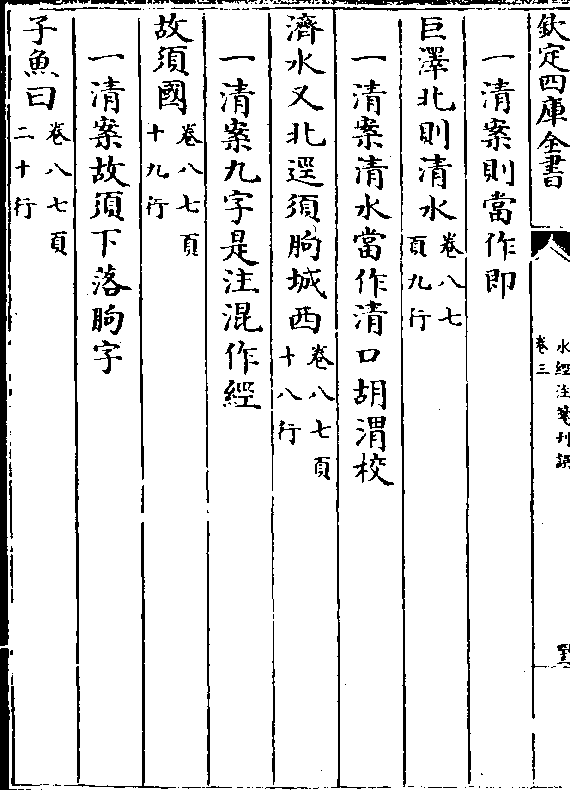 欽定四庫全書
水經注箋刊誤
卷三
一清案則當作即
巨澤北則清水卷八七頁九行
一清案清水當作清口胡渭校
濟水又北逕須朐城西卷八七頁十八行
一清案九字是注混作經
故須國卷八七頁十九行
一清案故須下落朐字
子魚曰卷八七頁二十行